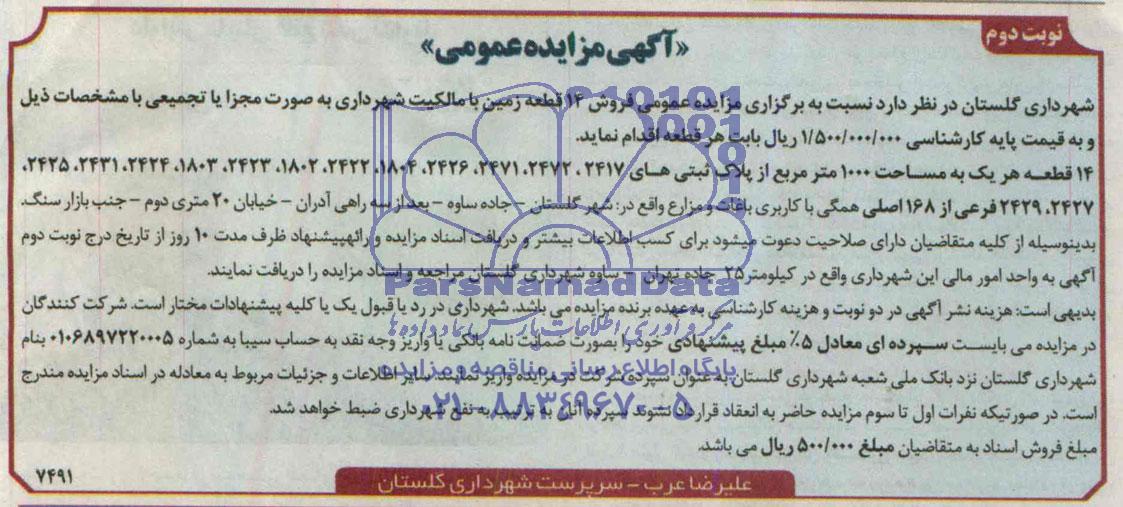 نوبت دوم
«آگهی مزایده عمومی»
شهرداری گلستان در نظر دارد نسبت به برگزاری مزایده عمومی فروش ۱۴ قطعه زمین با مالکیت شهرداری به صورت مجزا یا تجمیعی با مشخصات ذیل
و به قیمت پایه کارشناسی ۱/۵۰۰/۰۰۰/۰۰۰ ریال بابت هر قطعه اقدام نماید.
۱۴ قطعه هر یک به مساحت ۱۰۰۰ متر مربع از پلاک ثبتی های ۲۴۱۷، ۲۴۷۲، ۲۴۷۱، ۲۴۲۶، ۱۸۰۴، ۲۴۲۲، ۱۸۰۲، ۲۴۲۳، ۱۸۰۳، ۲۴۲۴، ۲۴۳۱، ۲۴۲۵،
۲۴۲۷، ۲۴۲۹ فرعی از ۱۶۸ اصلی همگی با کاربری باغات و مزارع واقع در: شهر گلستان - جاده ساوه - بعد از سه راهی آدران - خیابان ۲۰ متری دوم - جنب بازار سنگ.
بدینوسیله از کلیه متقاضیان دارای صلاحیت دعوت میشود برای کسب اطلاعات بیشتر و دریافت اسناد مزایده و رائهپیشنهاد ظرف مدت ۱۰ روز از تاریخ درج نوبت دوم
آگهی به واحد امور مالی این شهرداری واقع در کیلومتر ۲۵ جاده تهران - ساوه شهرداری گلستان مراجعه و اسناد مزایده را دریافت نمایند.
بدیهی است: هزینه نشر آگهی در دو نوبت و هزینه کارشناسی به عهده برنده مزایده می باشد. شهرداری در رد یا قبول یک یا کلیه پیشنهادات مختار است. شرکت کنندگان
در مزایده می بایست سپرده ای معادل ۵٪ مبلغ پیشنهادی خود را بصورت ضمانت نامه بانکی یا واریز وجه نقد به حساب سیبا به شماره ۰۱۰۶۸۹۷۲۲۰۰۰۵ بنام
شهرداری گلستان نزد بانک ملی شعبه شهرداری گلستان به عنوان سپرده شرکت در مزایده واریز نمایند. سایر اطلاعات و جزئیات مربوط به معادله در اسناد مزایده مندرج
است. در صورتیکه نفرات اول تا سوم مزایده حاضر به انعقاد قرارداد نشوند سپرده آنان به ترتیب به نفع شهرداری ضبط خواهد شد.
مبلغ فروش اسناد به متقاضیان مبلغ ۵۰۰/۰۰۰ ریال می باشد.
علیرضا عرب - سرپرست شهرداری گلستان
۷۴۹۱
ParsNamadData
مرکز فرآوری اطلاعات پارس نماد داده ها
پایگاه اطلاع رسانی مناقصه و مزایده
۰۲۱-۸۸۳۴۹۶۷۰-۵